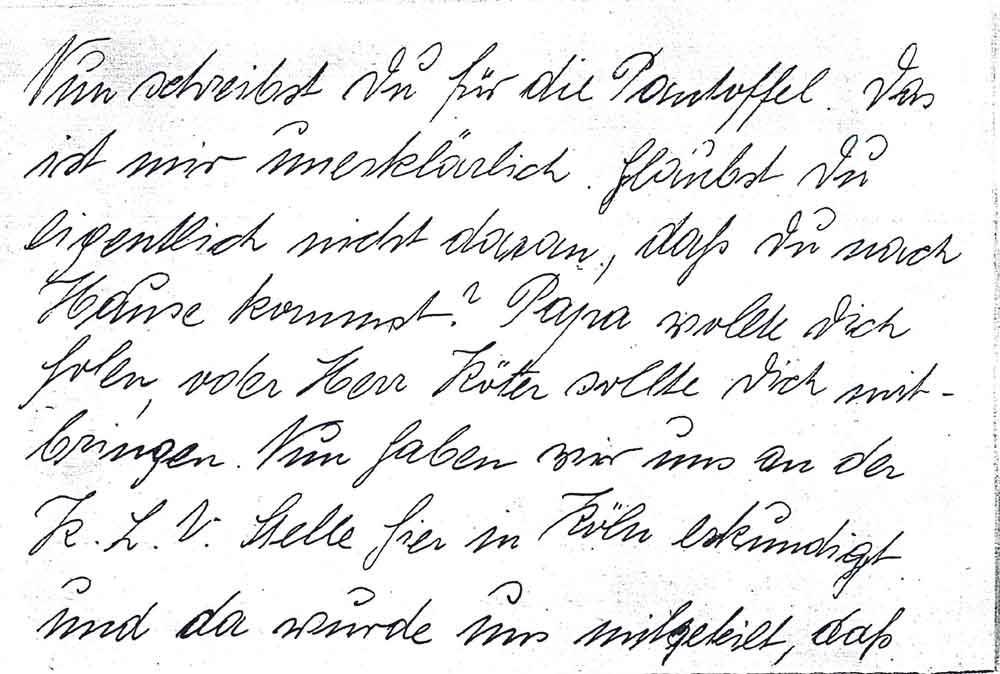 Nun schreibst Du für die Pantoffel. Das
ist mir unerklärlich. Glaubst Du
eigentlich nicht daran, daß Du nach
Hause kommst? Papa wollte Dich
holen, oder Herr Köter sollte Dich mit-
bringen. Nun haben wir uns an der
K. L. V. Stelle hier in Köln erkundigt
und da wurde uns mitgeteilt, daß